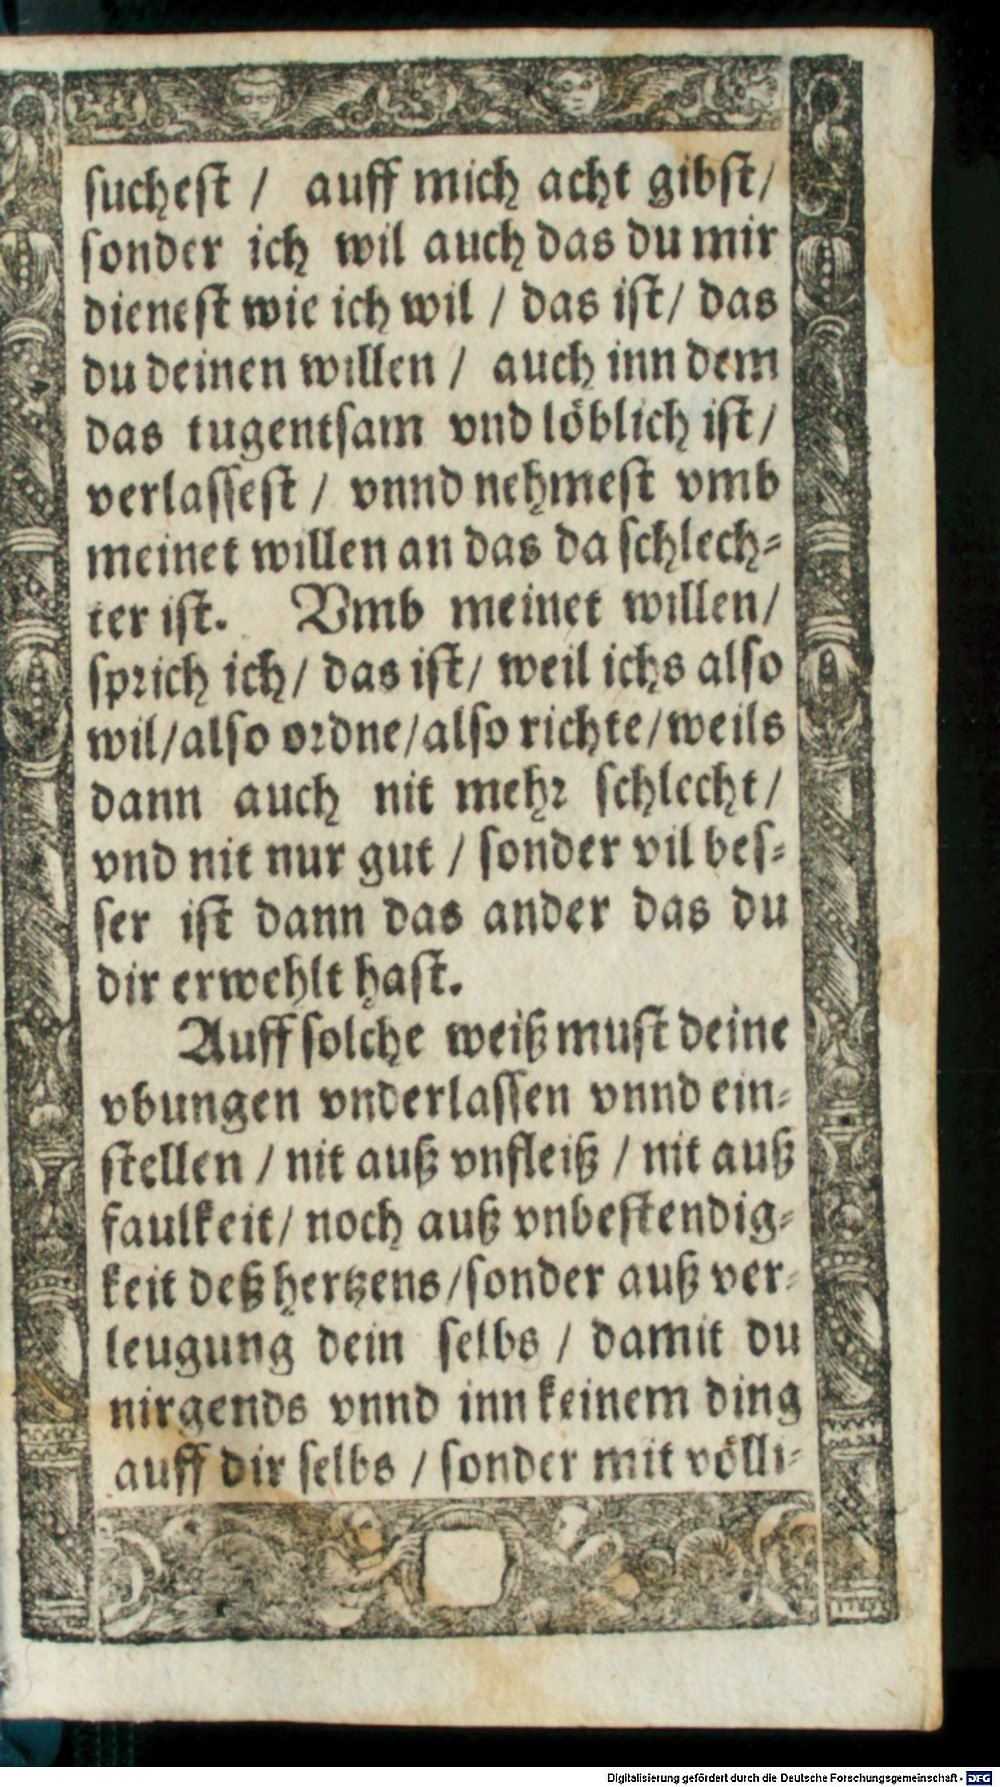 suchest / auff mich acht gibst/
sonder ich wil auch das du mir
dienest wie ich wil / das ist/ das
du deinen willen / auch inn dem
das tugentsam vnd löblich ist/
verlassest / vnnd nehmest vmb
meinet willen an das da schlech-
ter ist. Vmb meinet willen/
sprich ich/ das ist/ weil ichs also
wil/also ordne/also richte/weils
dann auch nit mehr schlecht/
vnd nit nur gut / sonder vil bes-
ser ist dann das ander das du
dir erwehlt hast.
Auff solche weiß must deine
vbungen vnderlassen vnnd ein-
stellen / nit auß vnfleiß / nit auß
faulkeit/ noch auß vnbestendig-
keit deß hertzens/sonder auß ver-
leugung dein selbs / damit du
nirgends vnnd inn keinem ding
auff dir selbs / sonder mit völli-
Digitalisierung gefördert durch die Deutsche Forschungsgemeinschaft - DFG